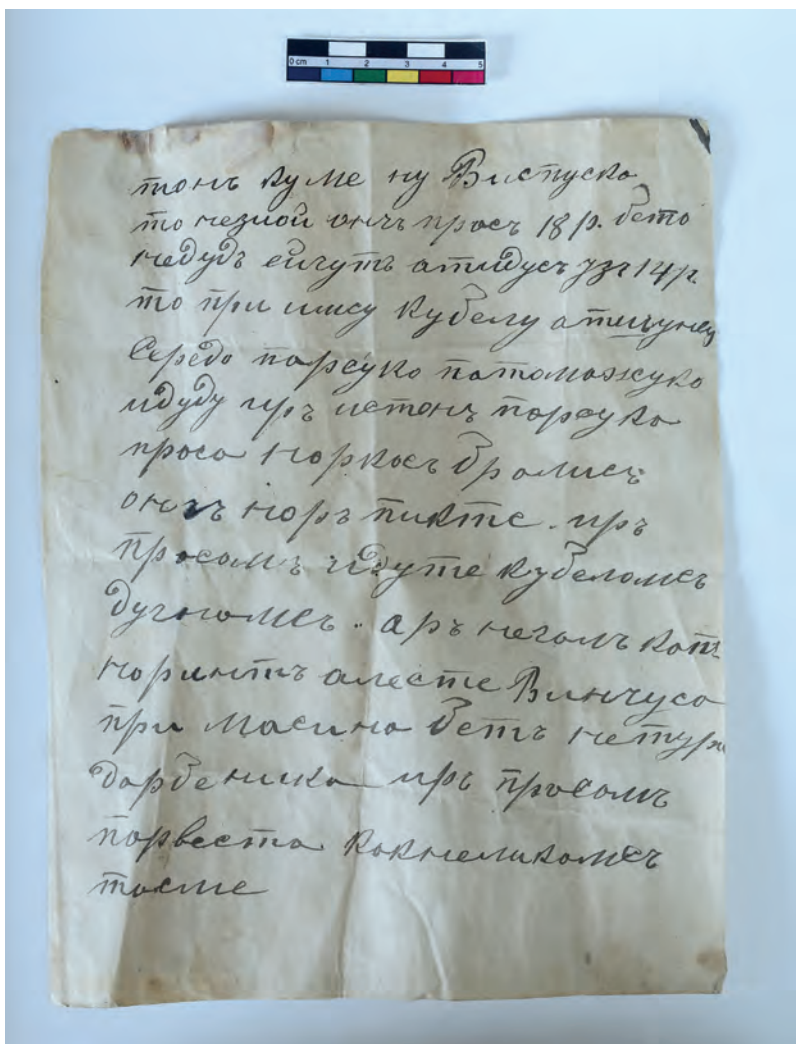 0 cm 1 2 3 4 5
тонъ куме ну Виспуска
то незной онъ просъ 18 р. бето
недудъ ейчутъ атидусъ узъ 14 р.
то при имсу кубелу атимунсу
Середо парсуко патоможуко
идуду иръ истонъ парсуко
проса норкосъ бролисъ
онъ норъ пиктс. иръ
просомъ идуте кубеломсъ
дугномсъ. аръ негомъ кот
норинтъ алесте Винчусо
при Масина бетъ нетур
дорбеника иръ просомъ
порвеста кокнеликомсъ
тосме